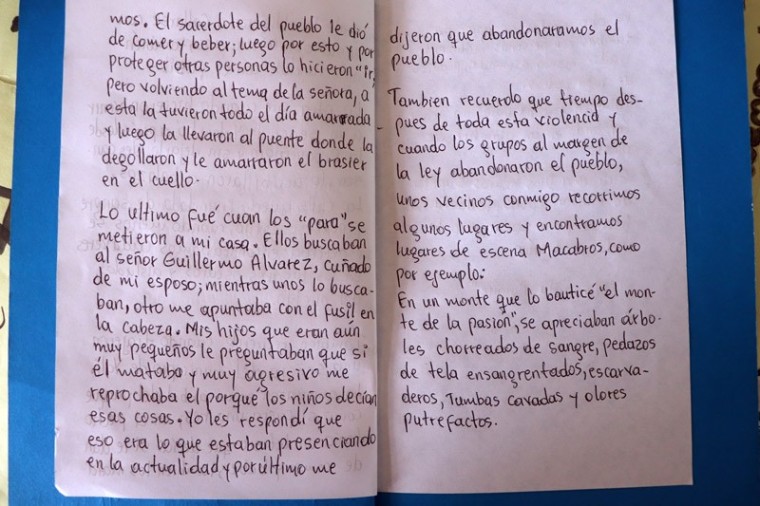 mos. El sacerdote del pueblo le dió
de comer y beber; luego por esto y por
proteger otras personas lo hicieron "ir,
pero volviendo al tema de la señora, a
esta la tuvieron todo el día amarrada
y luego la llevaron al puente donde la
degollaron y le amarraron el brasier
en el cuello.
Lo ultimo fué cuan los "para" se
metieron a mi casa. Ellos buscaban
al señor Guillermo Alvarez, cuñado
de mi esposo; mientras unos lo busca-
ban, otro me apuntaba con el fusil en
la cabeza. Mis hijos que eran aún
muy pequeños le preguntaban que si
él mataba y muy agresivo me
reprochaba el porqué los niños decían
esas cosas. Yo les respondí que
eso era lo que estaban presenciando
en la actualidad y por último me
dijeron que abandonaramos el
pueblo.
Tambien recuerdo que tiempo des-
pues de toda esta violencia y
cuando los grupos al margen de
la ley abandonaron el pueblo,
unos vecinos conmigo recorrimos
algunos lugares y encontramos
lugares de escena Macabros, como
por ejemplo:
En un monte que lo bauticé "el mon-
te de la pasion", se apreciaban árbo-
les chorreados de sangre, pedazos
de tela ensangrentados, escarva-
deros, Tumbas cavadas y olores
putrefactos.